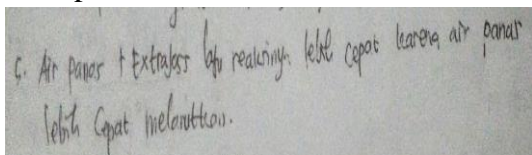 5. Air panas + Extrajoss laju reaksinya lebih cepat karena air panas
lebih Cepat melarutkan.